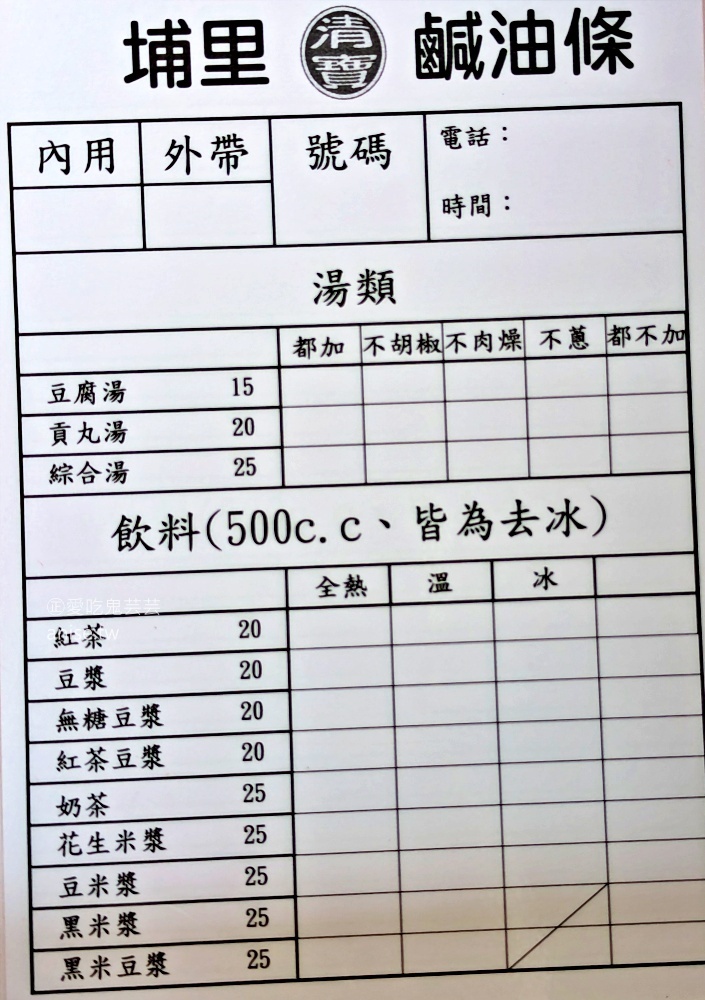 埔里 清寶 鹹油條
內用 外帶 號碼 電話：
時間：
湯類
都加 不胡椒 不肉燥 不蔥 都不加
豆腐湯 15
貢丸湯 20
綜合湯 25
飲料(500c.c、皆為去冰)
全熱 溫 冰
㊣愛吃鬼芸芸
紅茶 20
豆漿 20
無糖豆漿 20
紅茶豆漿 20
奶茶 25
花生米漿 25
豆米漿 25
黑米漿 25
黑米豆漿 25